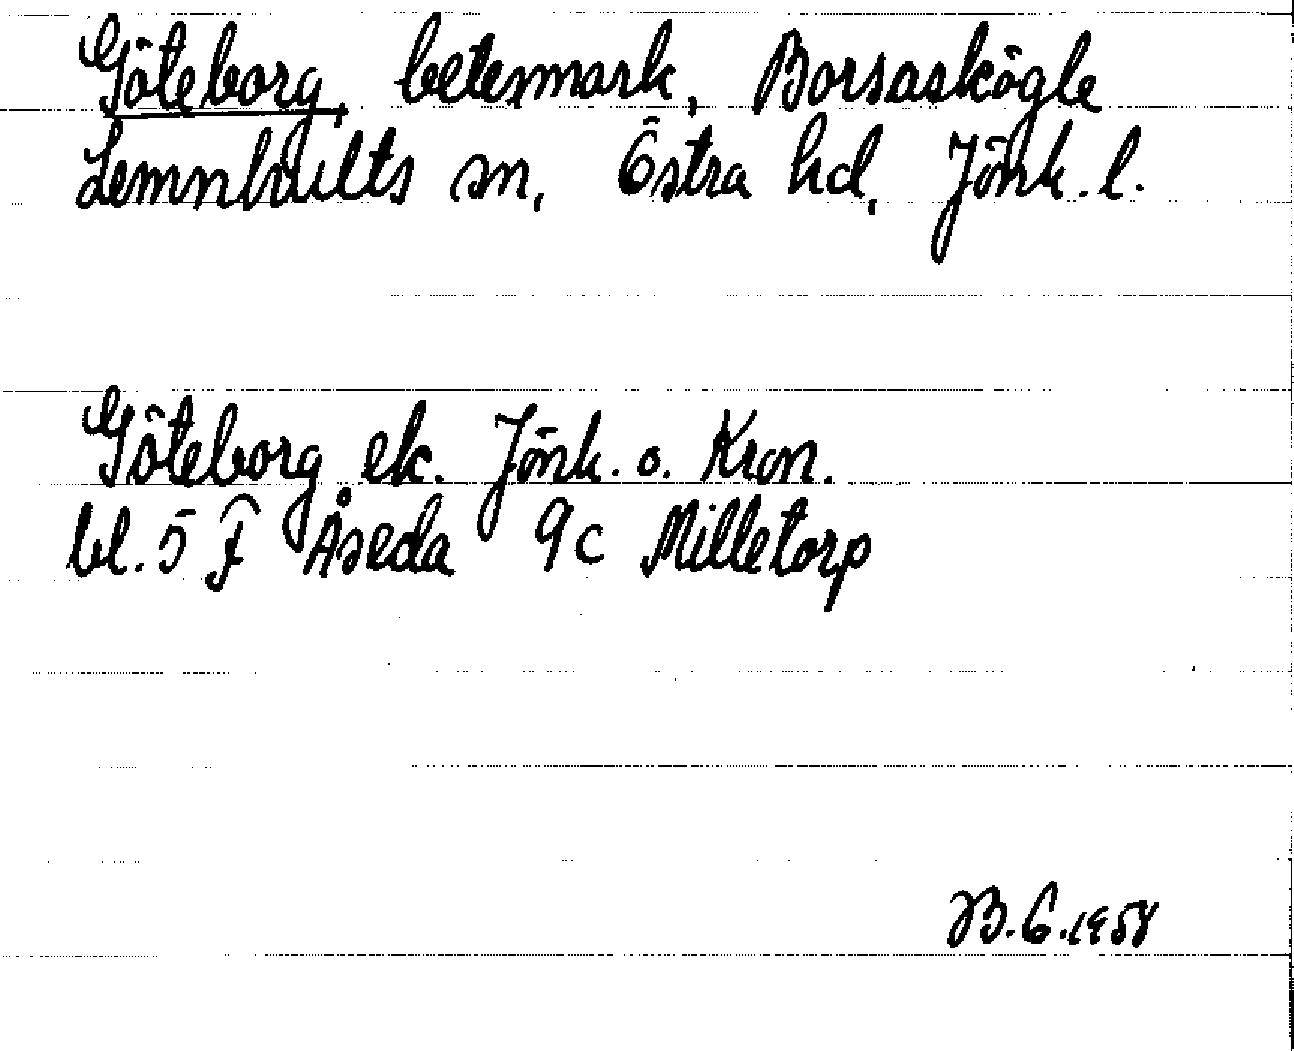 Göteborg, betesmark, Borsaskögle
Lemnhults sn, Östra hd, Jönk. l.
Göteborg ek. Jönk. o. Kron.
bl. 5 F Åseda 9c Milletorp
B. G. 1958